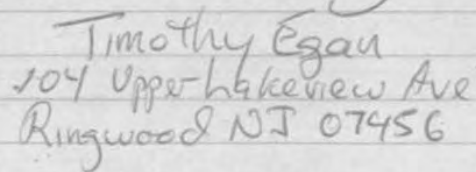 Timothy Egan
104 Upper Lakeview Ave
Ringwood NJ 07456